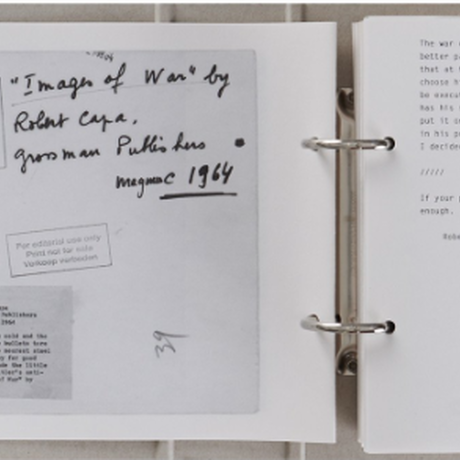 "Images of War" by
Robert Capa.
Grossman Publishers
1964
For editorial use only
Print not for sale
Verkoop verboden
Publishers
1964
cold and the
bullets tore
nearest steel
for good
the little
of War" by
39
The war
better
that at
choose
be
has his
put it
in his
I decided
/////
If your
enough.
Robe